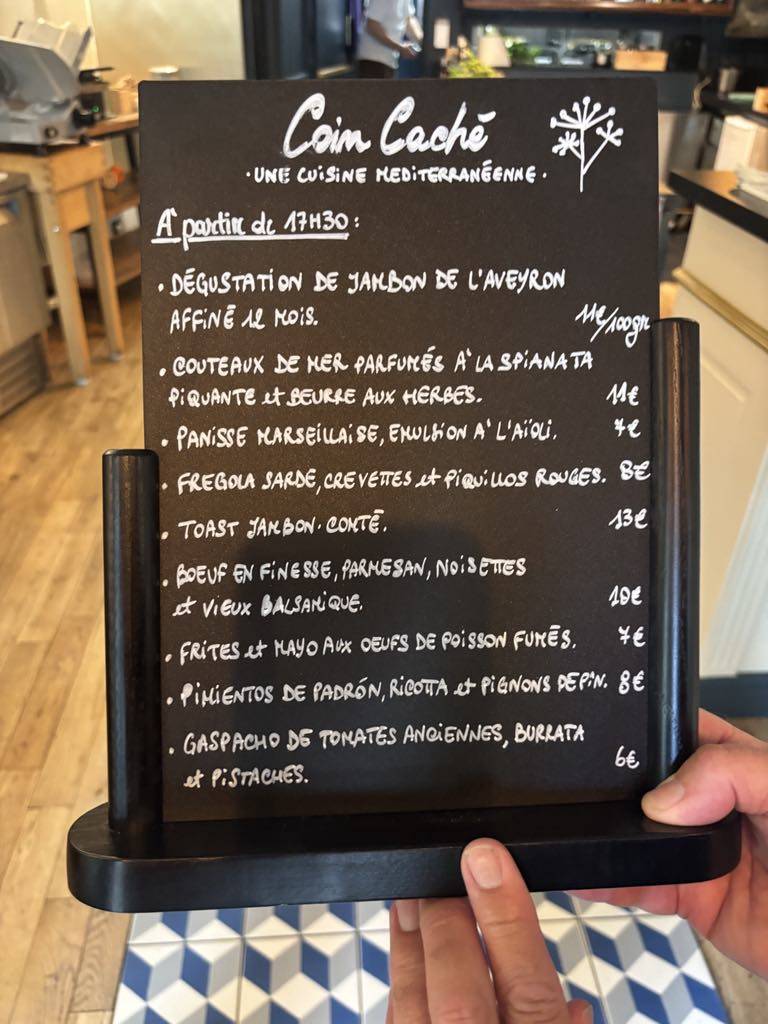 Coin Caché
·UNE CUISINE MEDITERRANÉENNE·
A' partir de 17H30 :
· DÉGUSTATION DE JAMBON DE L'AVEYRON
AFFINÉ 12 MOIS.
11€/100gr
· COUTEAUX DE MER PARFUMÉS A' LA SPIANATA
PIQUANTE et BEURRE AUX HERBES. 11€
· PANISSE MARSEILLAISE, EMULSION A' L'AÏOLI. 7€
· FREGOLA SARDE, CREVETTES et PIQUILLOS ROUGES. 8€
· TOAST JAMBON-COMTÉ. 13€
· BOEUF EN FINESSE, PARMESAN, NOISETTES
et VIEUX BALSAMIQUE. 10€
· FRITES et MAYO AUX OEUFS DE POISSON FUMÉS. 7€
· PIMIENTOS DE PADRÓN, RICOTTA et PIGNONS DE PIN. 8€
· GASPACHO DE TOMATES ANCIENNES, BURRATA
et PISTACHES. 6€